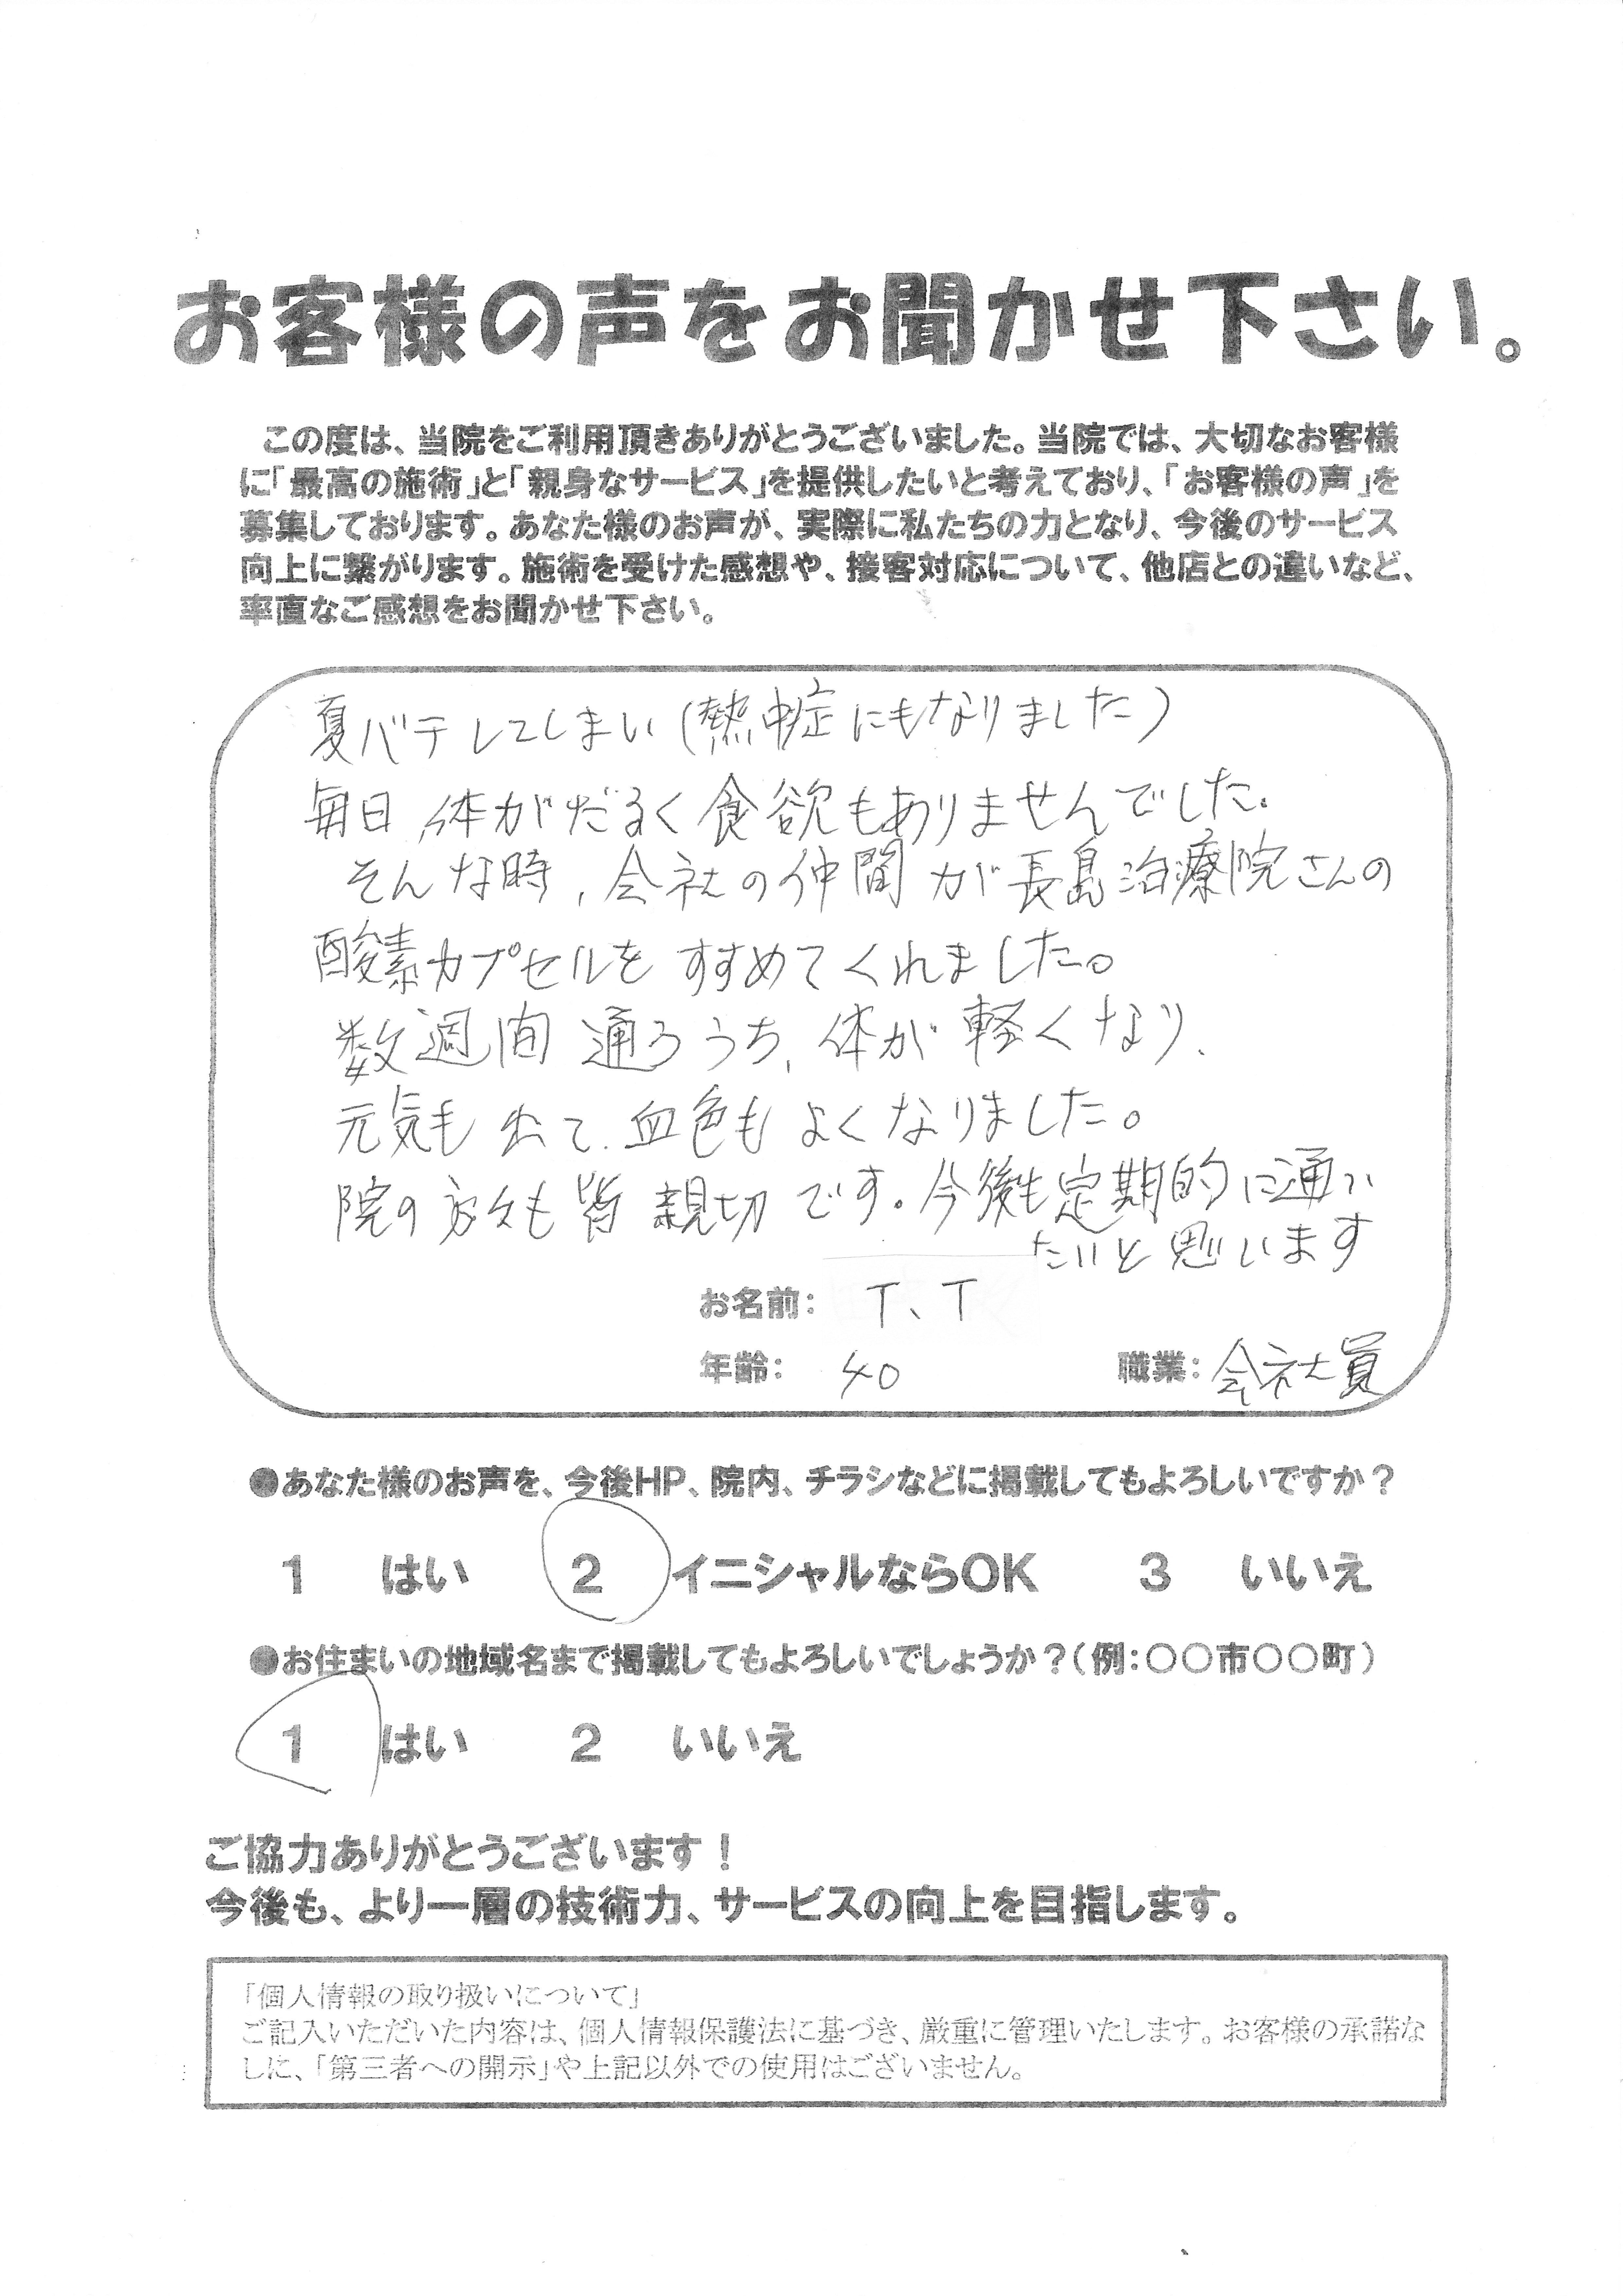 お客様の声をお聞かせ下さい。
この度は、当院をご利用頂きありがとうございました。当院では、大切なお客様
に「最高の施術」と「親身なサービス」を提供したいと考えており、「お客様の声」を
募集しております。あなた様のお声が、実際に私たちの力となり、今後のサービス
向上に繋がります。施術を受けた感想や、接客対応について、他店との違いなど、
率直なご感想をお聞かせ下さい。
夏バテしてしまい(熱中症にもなりました)
毎日、体がだるく食欲もありませんでした。
そんな時、会社の仲間が長島治療院さんの
酸素カプセルをすすめてくれました。
数週間通ろうち、体が軽くなり、
元気も出て、血色もよくなりました。
院の方々も皆親切です。今後も定期的に通い
たいと思います
お名前： T、T
年齢： 40 職業：会社員
●あなた様のお声を、今後HP、院内、チラシなどに掲載してもよろしいですか？
1 はい 2 イニシャルならOK 3 いいえ
●お住まいの地域名まで掲載してもよろしいでしょうか？（例：〇〇市〇〇町）
1 はい 2 いいえ
ご協力ありがとうございます！
今後も、より一層の技術力、サービスの向上を目指します。
「個人情報の取り扱いについて」
ご記入いただいた内容は、個人情報保護法に基づき、厳重に管理いたします。お客様の承諾な
しに、「第三者への開示」や上記以外での使用はございません。